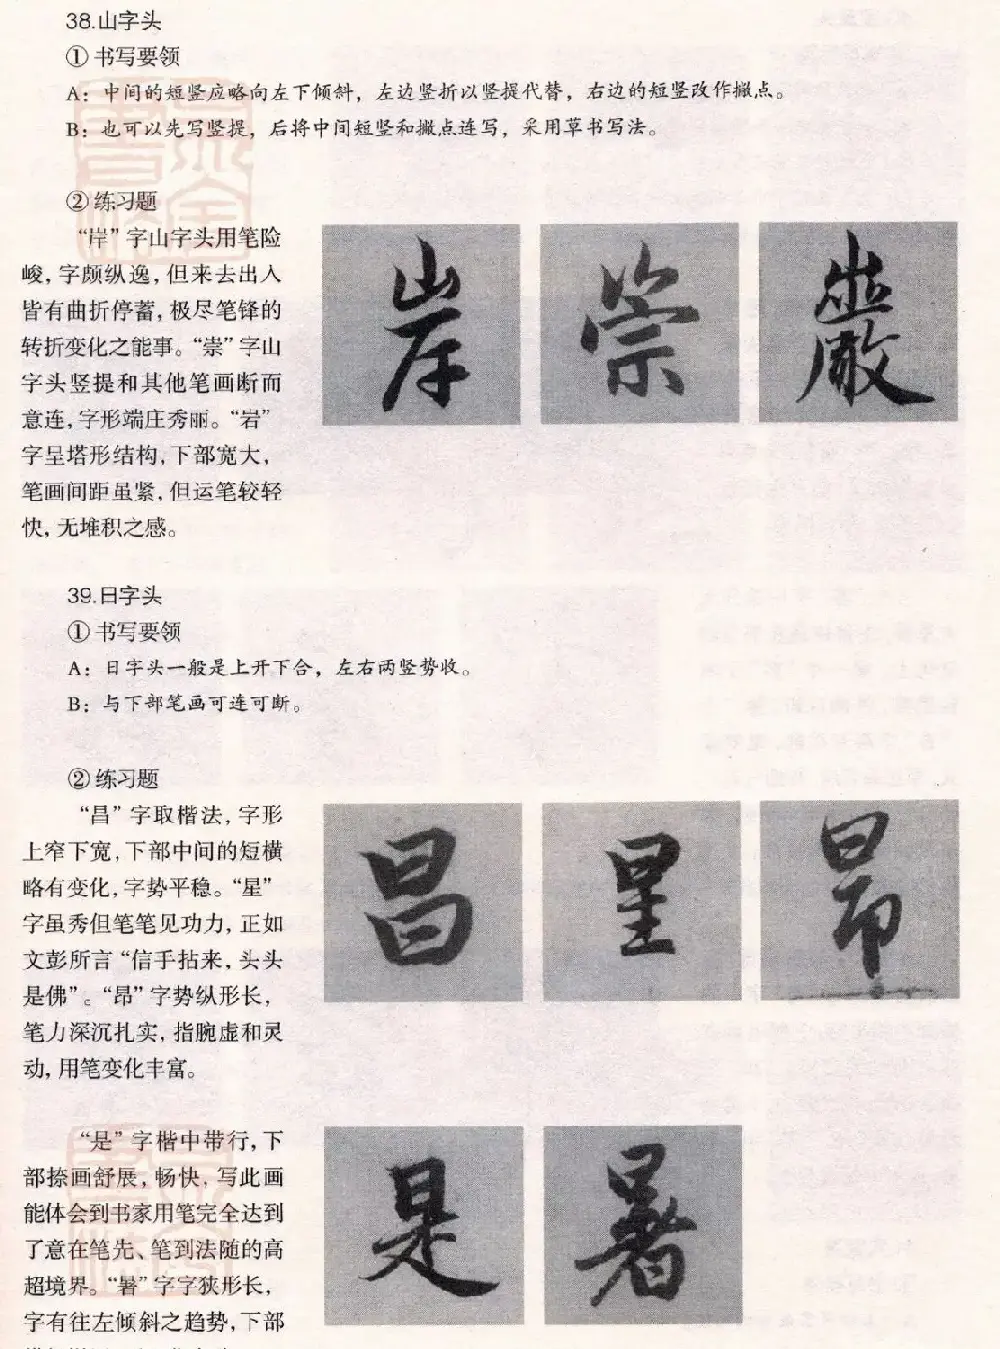 38.山字头
① 书写要领
A：中间的短竖应略向左下倾斜，左边竖折以竖提代替，右边的短竖改作撇点。
B：也可以先写竖提，后将中间短竖和撇点连写，采用草书写法。
② 练习题
“岸”字山字头用笔险
峻，字颇纵逸，但来去出入
皆有曲折停蓄，极尽笔锋的
转折变化之能事。“崇”字山
字头竖提和其他笔画断而
意连，字形端庄秀丽。“岩”
字呈塔形结构，下部宽大，
笔画间距虽紧，但运笔较轻
快，无堆积之感。
岸 崇 巖
39.日字头
① 书写要领
A：日字头一般是上开下合，左右两竖势收。
B：与下部笔画可连可断。
② 练习题
“昌”字取楷法，字形
上窄下宽，下部中间的短横
略有变化，字势平稳。“星”
字虽秀但笔笔见功力，正如
文彭所言“信手拈来，头头
是佛”。“昂”字势纵形长，
笔力深沉扎实，指腕虚和灵
动，用笔变化丰富。
昌 星 昂
“是”字楷中带行，下
部捺画舒展，畅快，写此画
能体会到书家用笔完全达到
了意在笔先、笔到法随的高
超境界。“暑”字字狭形长，
字有往左倾斜之趋势，下部
是 暑